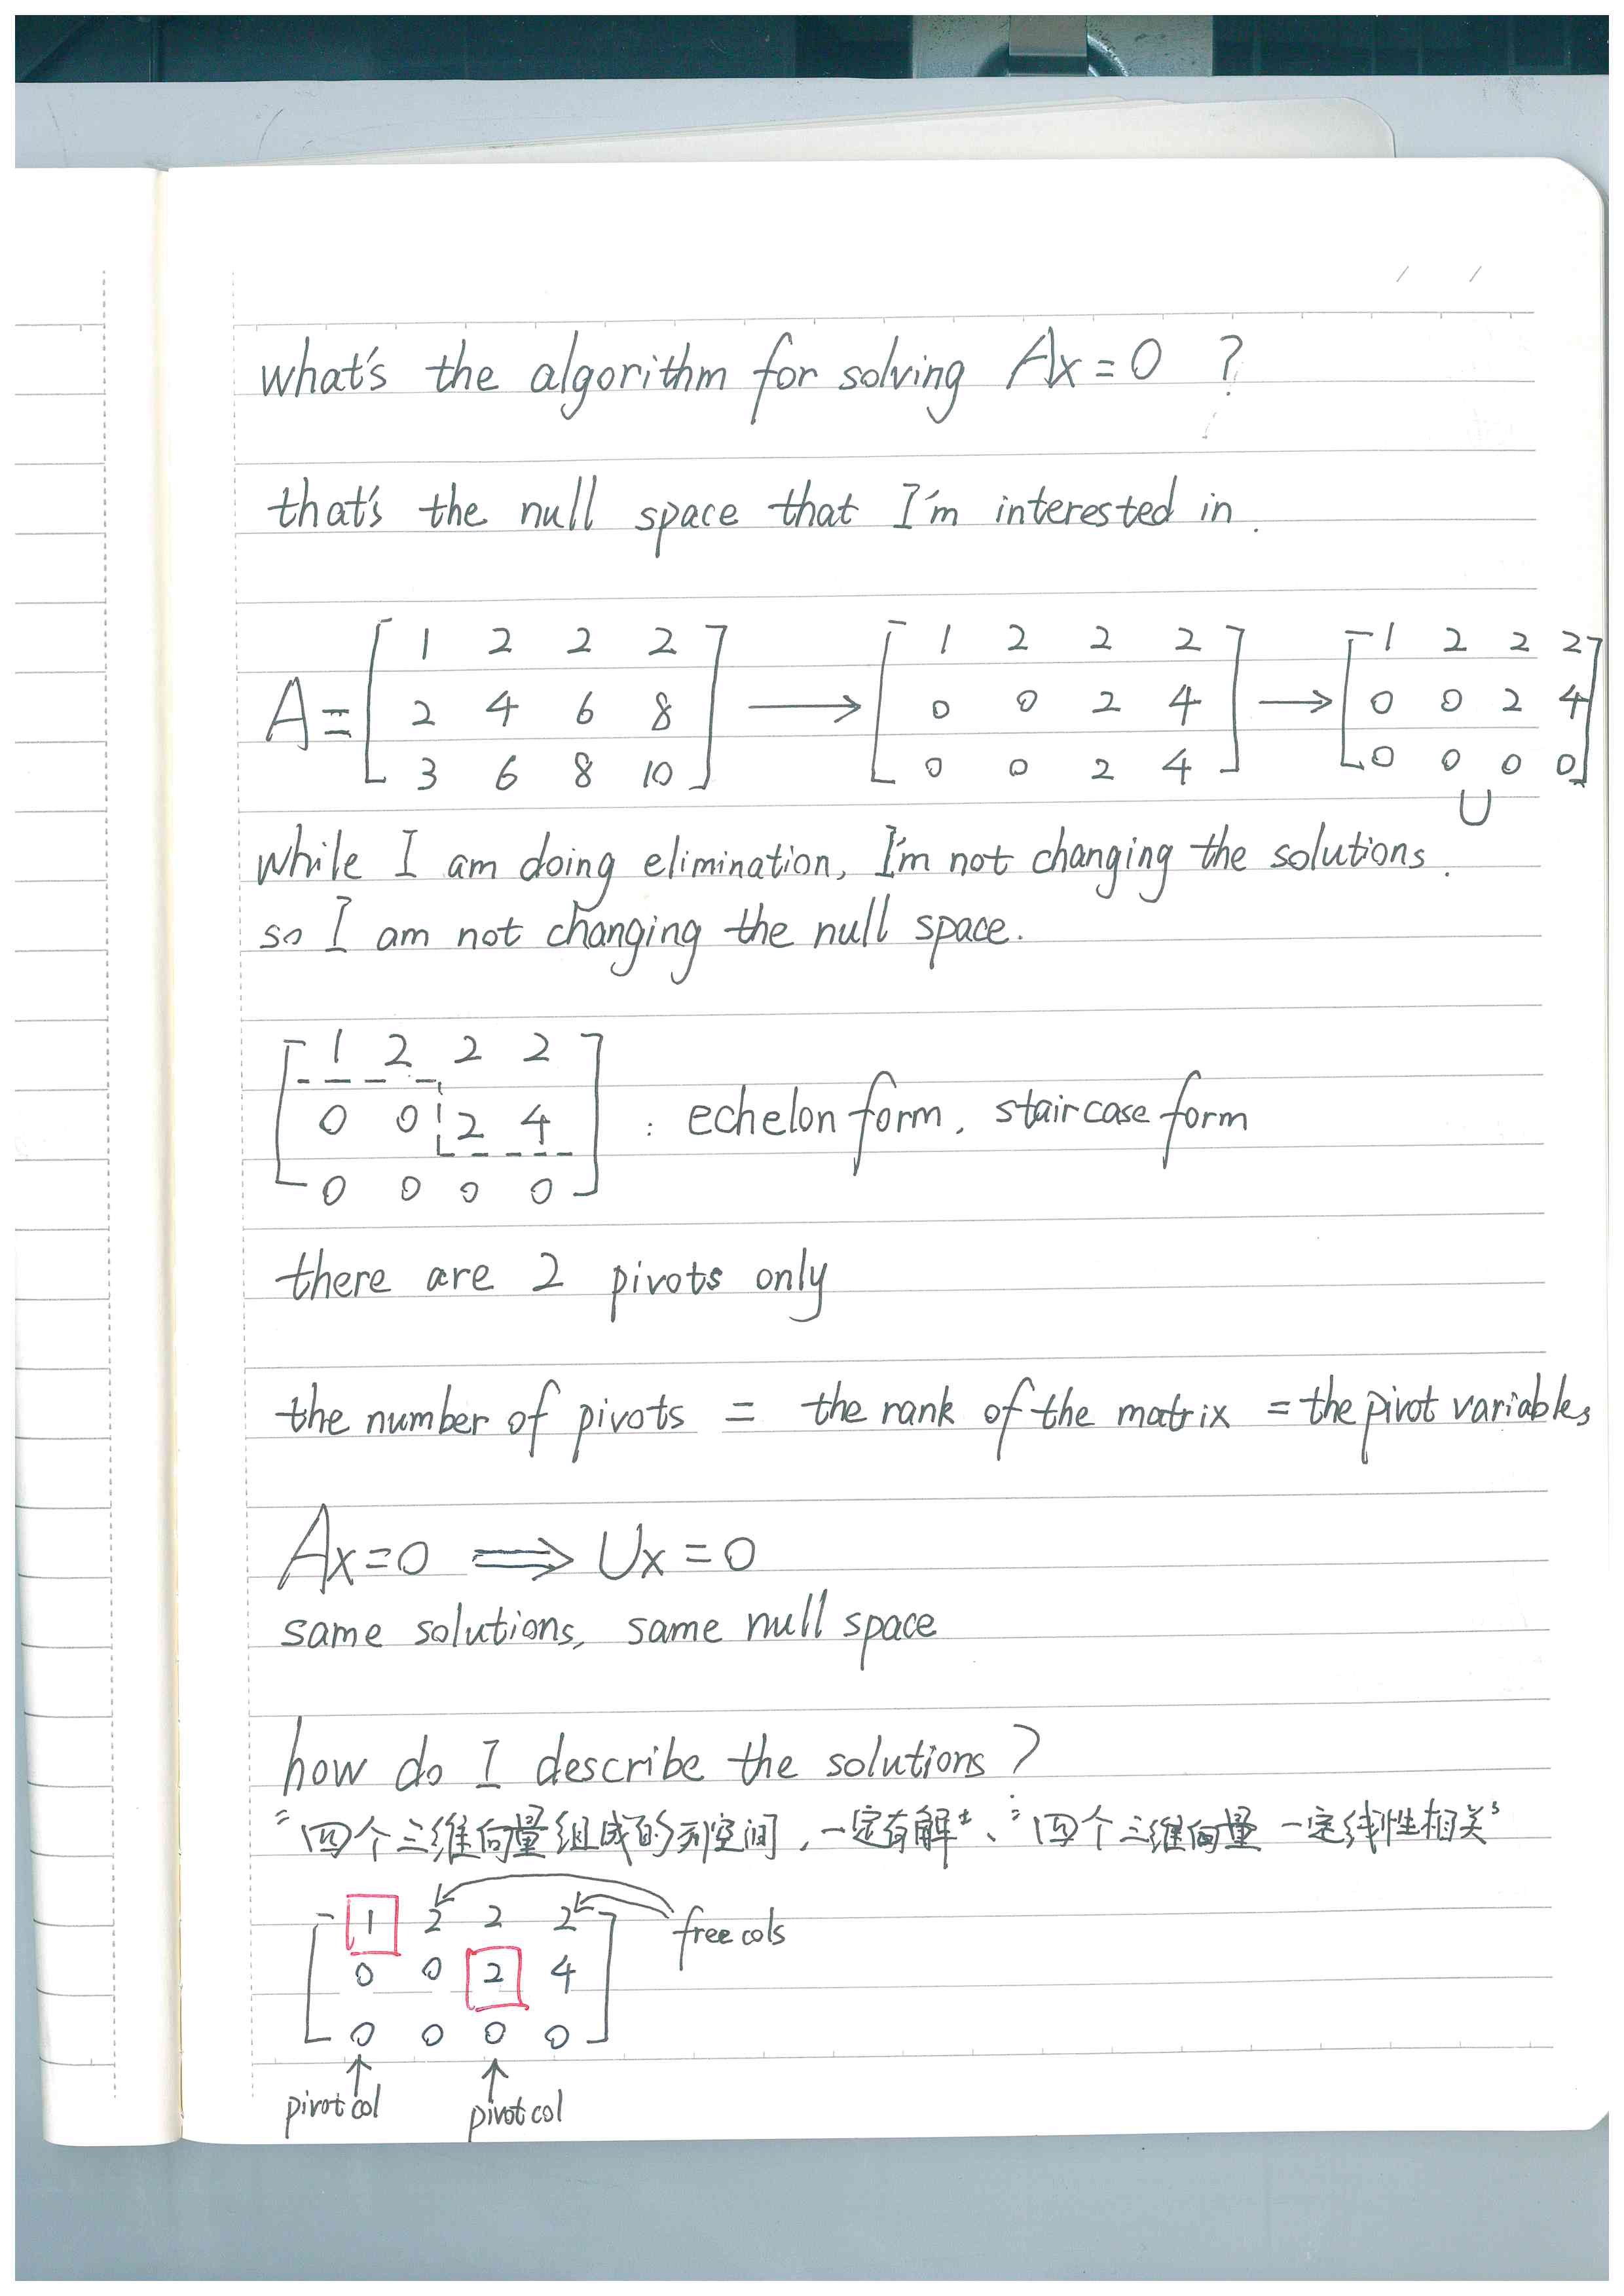 what's the algorithm for solving Ax=0 ?
that's the null space that I'm interested in.
A= [ 1 2 2 2 ] → [ 1 2 2 2 ] → [ 1 2 2 2 ]
[ 2 4 6 8 ] [ 0 0 2 4 ] [ 0 0 2 4 ]
[ 3 6 8 10 ] [ 0 0 2 4 ] [ 0 0 0 0 ]
U
while I am doing elimination, I'm not changing the solutions.
so I am not changing the null space.
[ 1 2 2 2 ]
[ 0 0 2 4 ] : echelon form, staircase form
[ 0 0 0 0 ]
there are 2 pivots only
the number of pivots = the rank of the matrix = the pivot variables
Ax=0 ⟹ Ux=0
same solutions, same null space
how do I describe the solutions ?
"四个三维向量组成的列空间,一定有解"、"四个三维向量 一定线性相关"
[ 1 2 2 2 ] free cols
[ 0 0 2 4 ]
[ 0 0 0 0 ]
↑ ↑
pivot col pivot col